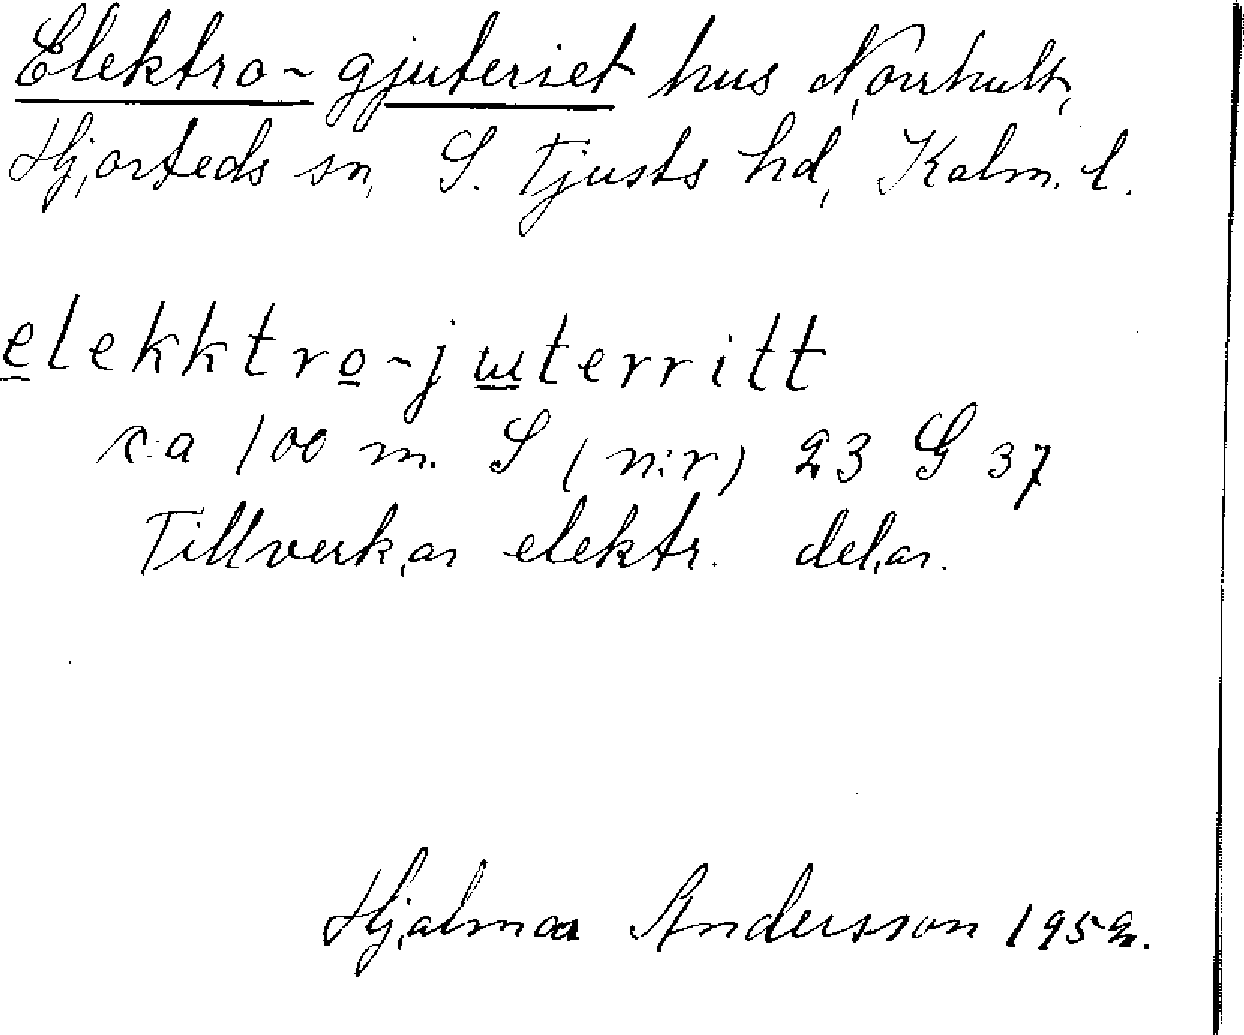 Elektro-gjuteriet hus Norrhult,
Hjorteds sn, S. Tjusts hd, Kalm. l.
elekktro-juterritt
ca 100 m. S (n:r) 23 G 37
Tillverkar elektr. delar.
Hjalmar Andersson 1952.